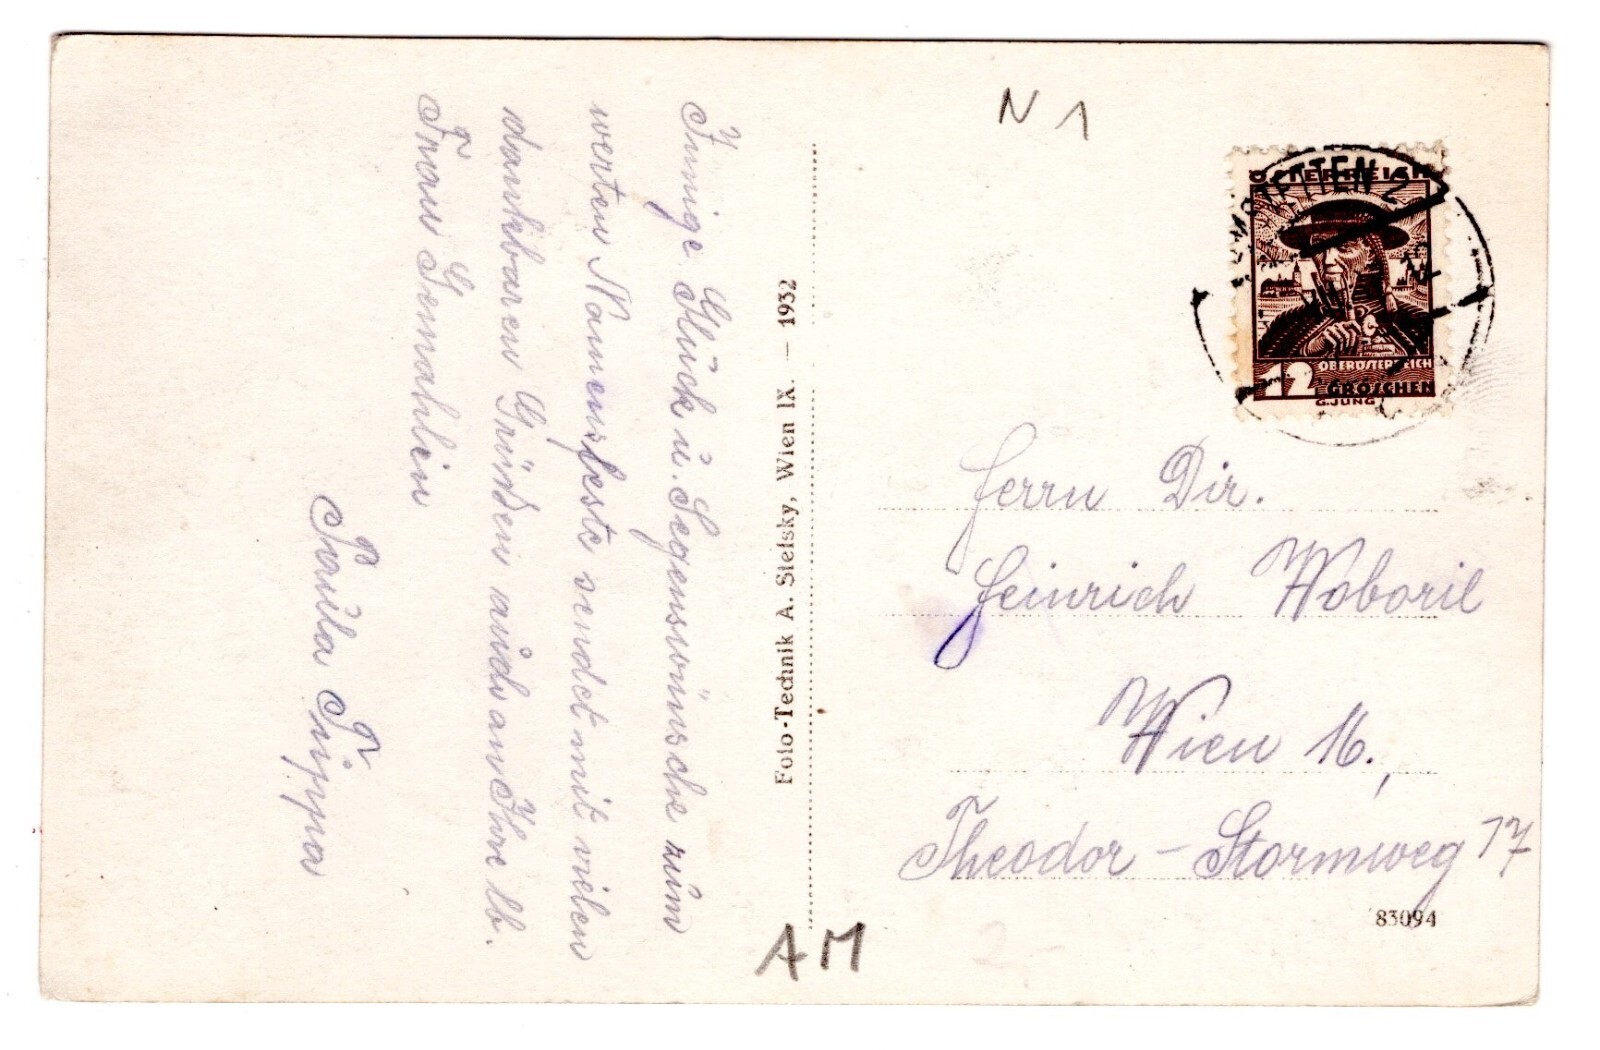 Innige Glück u. Segenswünsche zum
werten Namensfeste sendet mit vielen
dankbaren Grüßen auch an Ihre lb.
Frau Gemahlin
Paula Trippa
Foto-Technik A. Stefsky, Wien IX. — 1932
N 1
ÖSTERREICH
OBERÖSTERREICH
12 GROSCHEN
G.JUNG
Herrn Dir.
Heinrich Woboril
Wien 16.,
Theodor - Stormweg 17
83094
AM